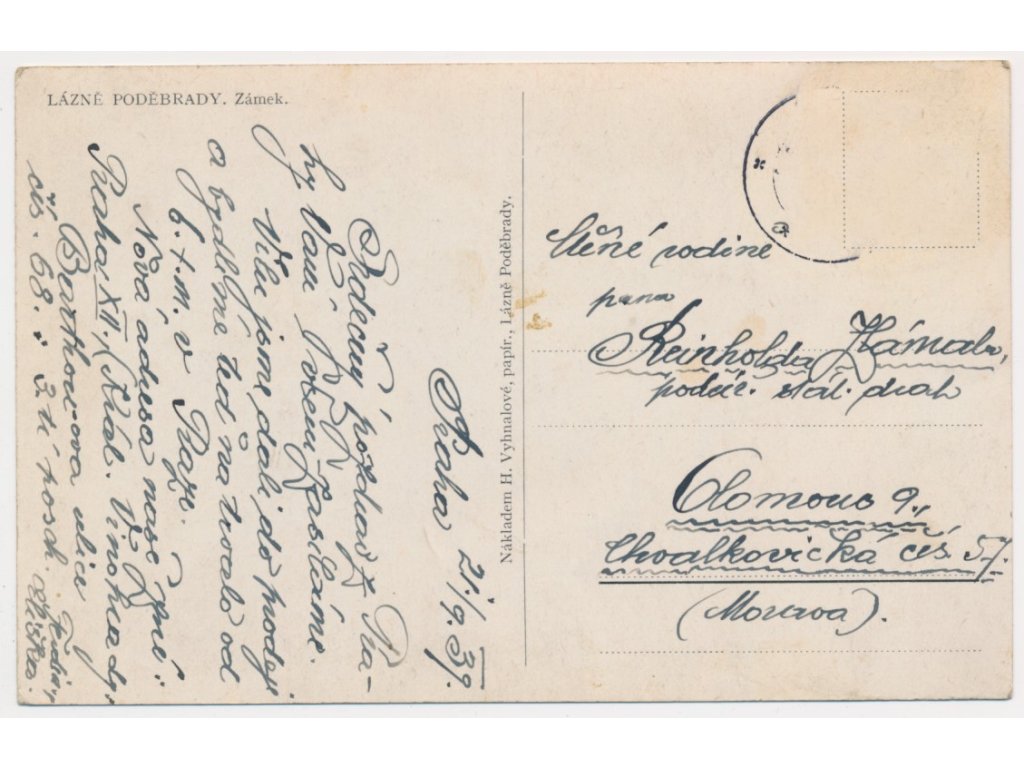 LÁZNĚ PODĚBRADY. Zámek.
Praha 21./9. 39.
Srdečný pozdrav z Pra-
hy Vám všem zasíláme.
Vilu jsme dali do prodeje
a bydlíme teď na trvalo od
6. t. m. v Praze.
Nová adresa naše zní:
Praha XII, (Král. Vinohrady,
Barthouova ulice
čís. 68. 3.tí posch.
Nákladem H. Vyhnalové, papír., Lázně Poděbrady.
Ctěné rodině
pana
Reinholda Hámala,
podúř. stát. drah
Olomouc 9.,
Chvalkovická čís 57.
(Morava).